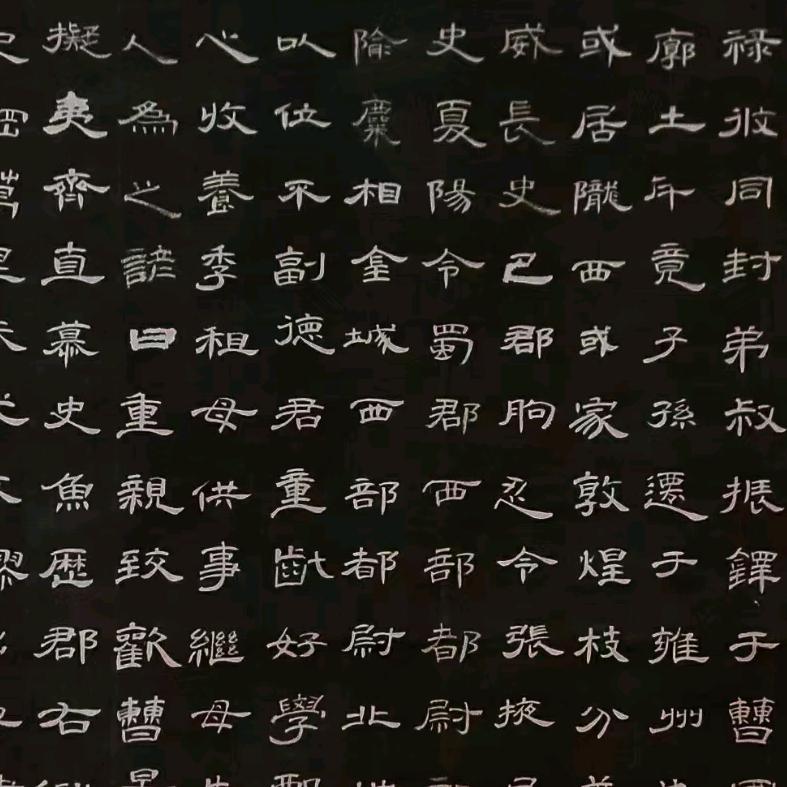 祿攸同封弟叔振鐸于曹
廓土斥竟子孫遷于雍州
或居隴西或家敦煌枝分
威長史巴郡朐忍令張掖
史夏陽令蜀郡西部都尉
隃麋相金城西部都尉北
以位不副德君童齔好學
心收養季祖母供事繼母
人為之諺曰重親致歡曹
擬夷齊直慕史魚歷郡右